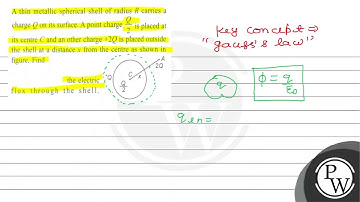 A thin metallic spherical shell of radius R carries a
charge Q on its surface. A point charge Q/2 is placed at
its centre C and an other charge +2Q is placed outside
the shell at a distance x from the centre as shown in
figure. Find
the electric
flux through the shell.
Q
C
x
A
2Q
Q/2
key concept ⇒
"gauss's law"
q
ϕ = q/ε0
qen =
P
W